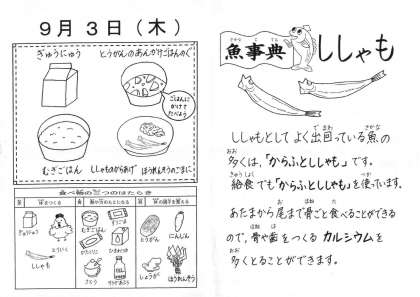 9月3日(木)
ぎゅうにゅう
とうがんのあんかけごはんのぐ
ごはんに
かけて
たべよう
むぎごはん
ししゃものからあげ
ほうれんそうのごまに
食べ物の三つのはたらき
ぎゅうにゅう
とりにく
ししゃも
むぎごはん
さとう
とうがん
にんじん
しょうが
ほうれんそう
魚事典
さかな じてん
ししゃも
ししゃもとして よく出回っている魚の
多くは、「からふとししゃも」です。
給食でも「からふとししゃも」を使っています。
あたまから尾まで骨ごと食べることができる
ので、骨や歯をつくる カルシウムを
多くとることができます。